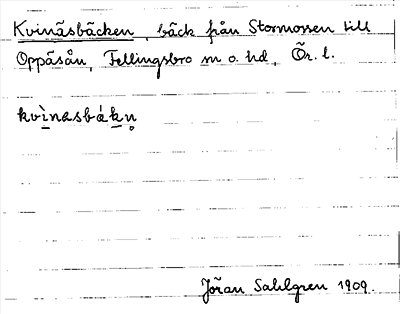 Kvinäsbäcken, bäck från Stormossen till
Oppåsån, Fellingsbro sn o. hd, Ör. l.
kvìnasbákn̥
Jöran Sahlgren 1909.